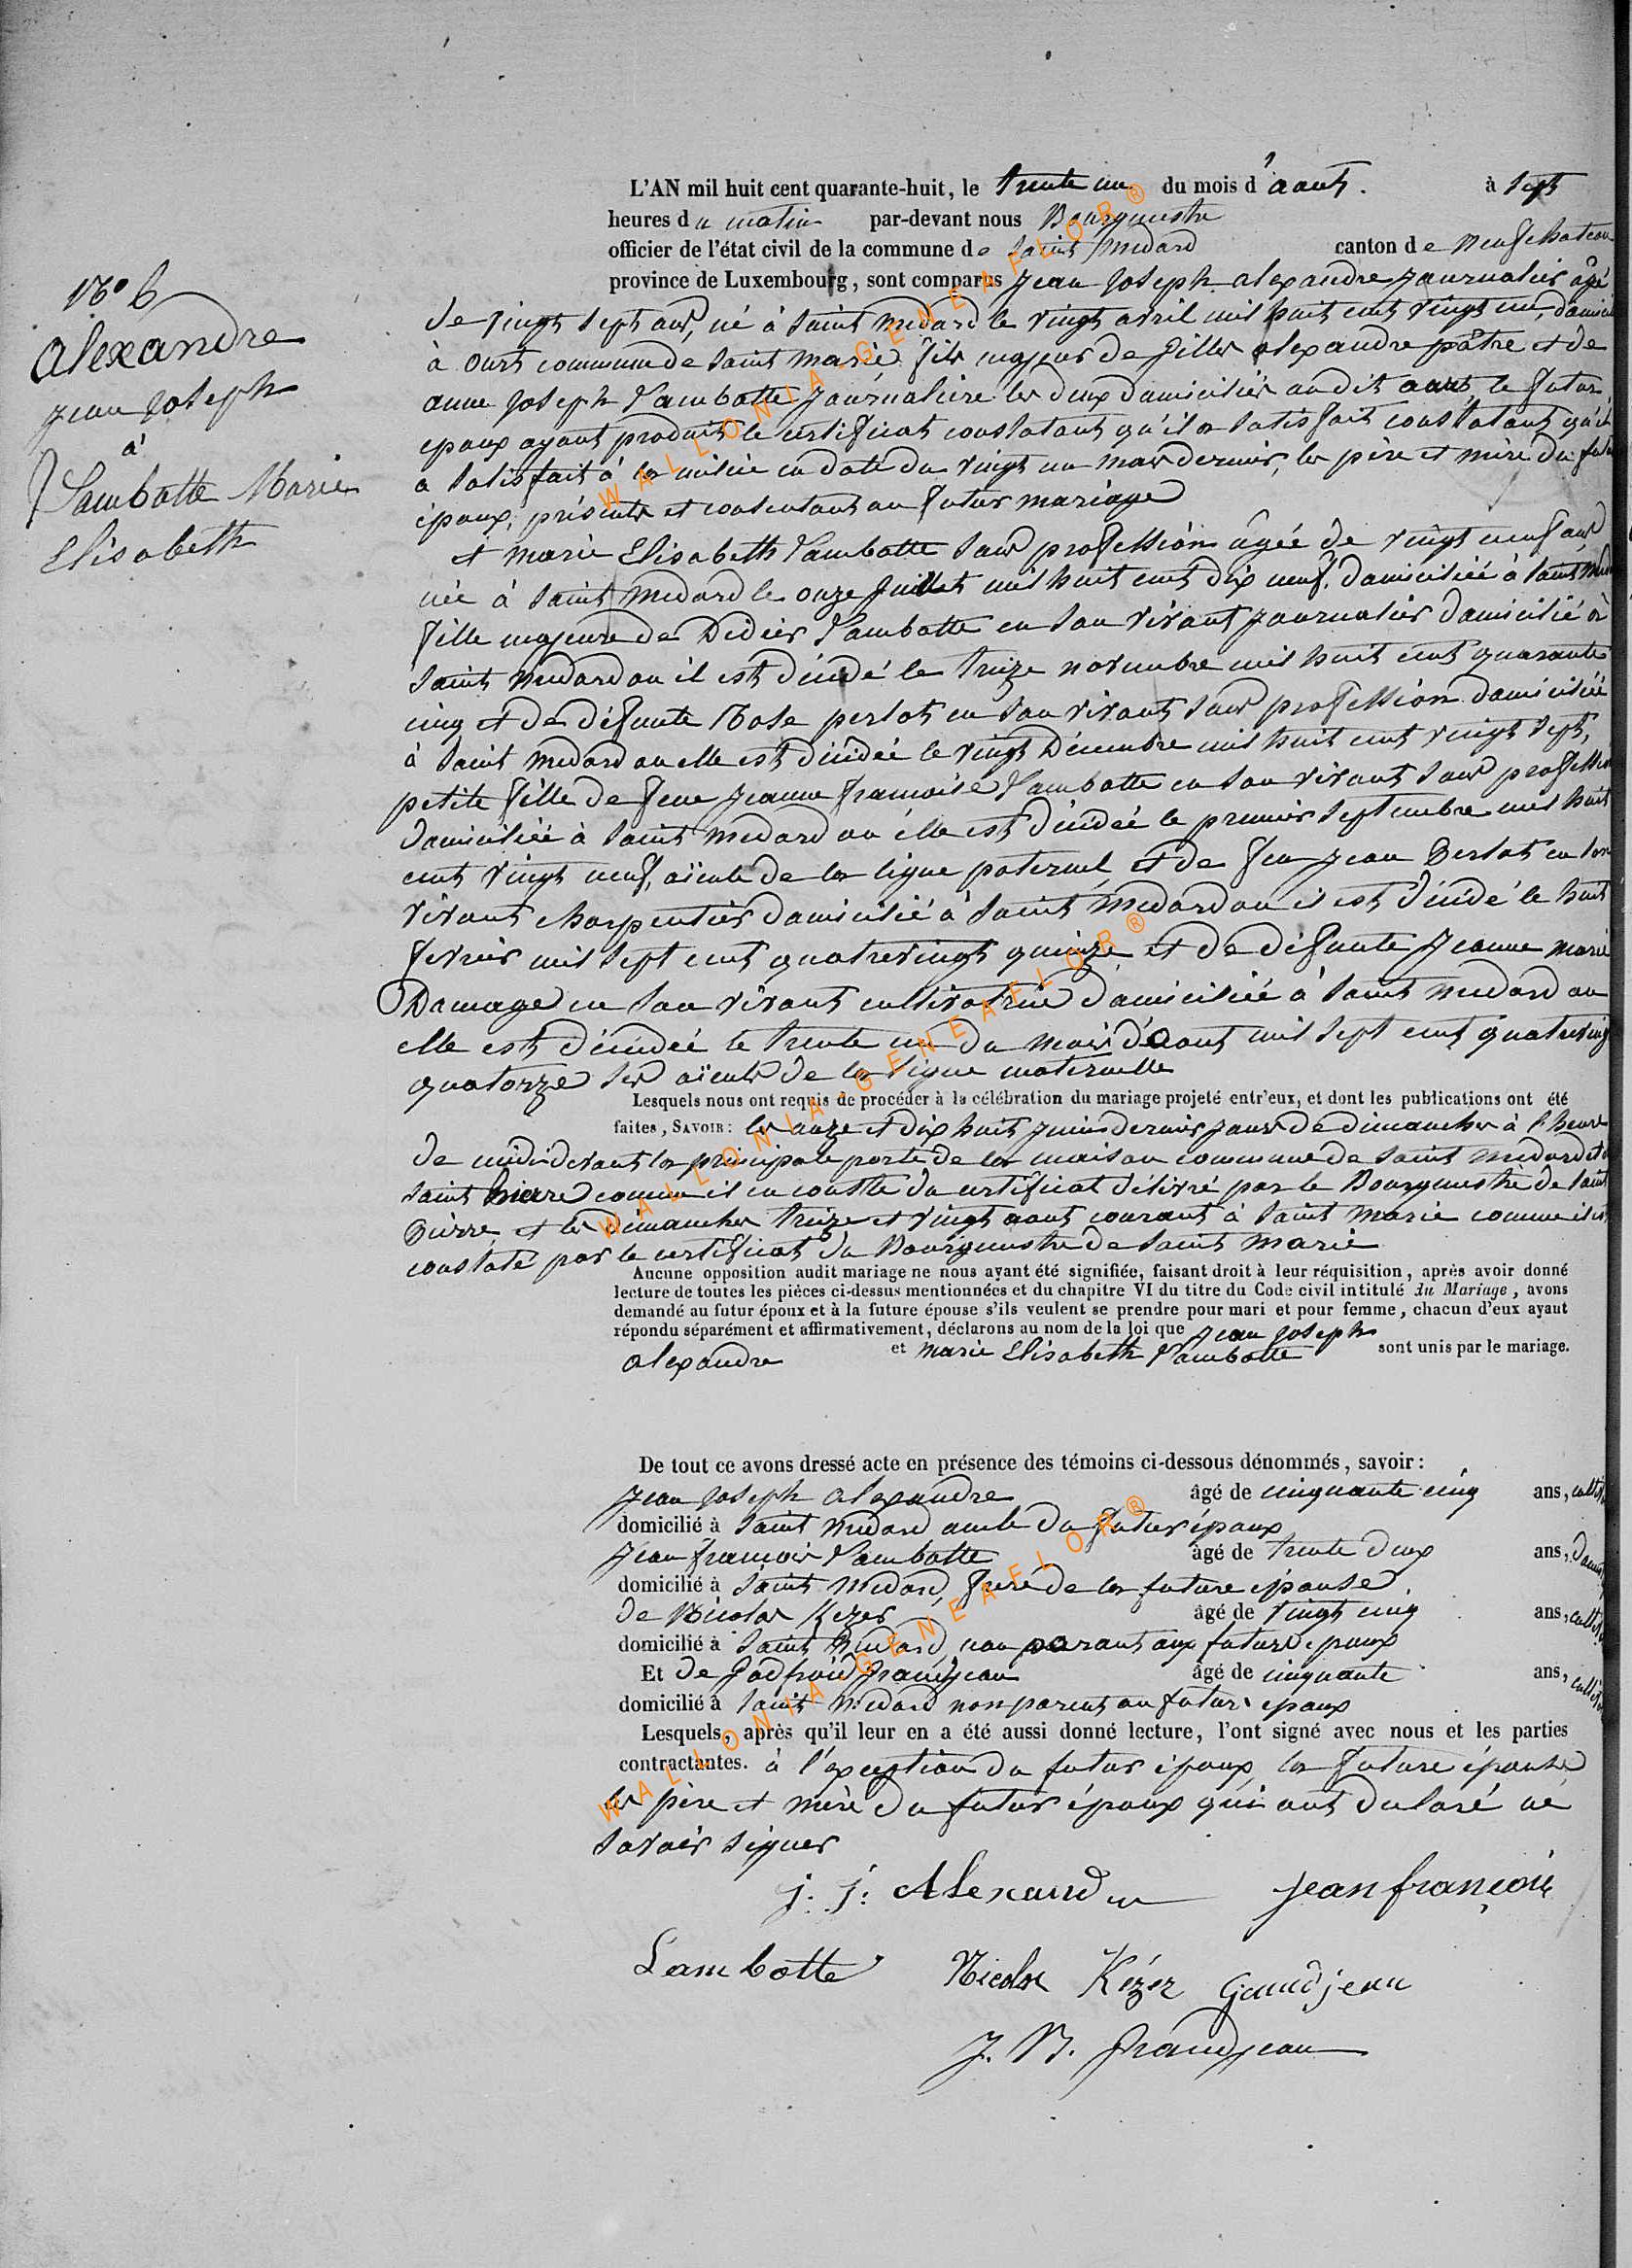 N° 6
Alexandre
Jean Joseph
à
Lambotte Marie
Elisabeth
L'AN mil huit cent quarante-huit, le trente un du mois d'aout. à sept
heures du matin par-devant nous Bourgmestre
officier de l'état civil de la commune de Saint Medard canton de Neufchateau
province de Luxembourg, sont comparus Jean Joseph alexandre journalier âgé
de vingt sept ans, né à Saint Medard le vingt avril mil huit cent vingt un, domicilié
à Ourt commune de Saint Marie fils majeur de Gilles alexandre pâtre et de
anne Joseph Lambotte journalière les deux domiciliés audit ourt, le futur
epoux ayant produit le certificat constatant qu'il a satisfait constatant qu'il
a satisfait à la milice en date du vingt un mars dernier, les père et mère du futur
époux, présents et consentant au futur mariage
et marie Elisabeth Lambotte sans profession âgée de vingt neuf ans
née à Saint Medard le onze Juillet mil huit cent dix neuf, domiciliée à Saint Medard
fille majeure de Didier Lambotte en son vivant journalier domicilié à
Saint Medard ou il est décédé le treize novembre mil huit cent quarante
cinq et de défunte Rose perlot en son vivant sans profession domiciliée
à Saint Medard ou elle est décédée le vingt Décembre mil huit cent vingt sept,
petite fille de feue Jeanne françoise Lambotte en son vivant sans profession
domiciliée à Saint Medard ou elle est décédée le premier septembre mil huit
cent vingt neuf, aïeule de la ligne paternel, et de feu Jean Perlot en son
vivant charpentier domicilié à Saint Medard ou il est décédé le huit
fevrier mil sept cent quatrevingt quinze et de défunte Jeanne marie
Damage en son vivant cultivatrice domiciliée à Saint Medard ou
elle est décédée le trente un du mois d'aout mil sept cent quatrevingt
quatorze ses aïeuls de la ligne maternelle
Lesquels nous ont requis de procéder à la célébration du mariage projeté entr'eux, et dont les publications ont été
faites, SAVOIR: les onze et dix huit juin dernier jours de dimanches à l'heure
de midi devant la principale porte de la maison commune de Saint Medard et
Saint Pierre comme il en conste du certificat délivré par le Bourgmestre de Saint
Pierre, et les dimanches treize et vingt aout courant à Saint Marie comme il est
constaté par le certificat du Bourgmestre de Saint Marie
Aucune opposition audit mariage ne nous ayant été signifiée, faisant droit à leur réquisition, après avoir donné
lecture de toutes les pièces ci-dessus mentionnées et du chapitre VI du titre du Code civil intitulé du Mariage, avons
demandé au futur époux et à la future épouse s'ils veulent se prendre pour mari et pour femme, chacun d'eux ayant
répondu séparément et affirmativement, déclarons au nom de la loi que Jean Joseph
alexandre et Marie Elisabeth Lambotte sont unis par le mariage.
De tout ce avons dressé acte en présence des témoins ci-dessous dénommés, savoir:
Jean Joseph alexandre âgé de cinquante cinq ans,
domicilié à Saint Medard oncle du futur époux
Jean françois Lambotte âgé de trente deux ans,
domicilié à Saint Medard, frere de la future épouse.
de Nicolas Kezer âgé de vingt cinq ans,
domicilié à Saint Medard, non parant aux futurs epoux
Et de Godfroid Grandjean âgé de cinquante ans,
domicilié à Saint Medard non parent au futurs epoux
Lesquels, après qu'il leur en a été aussi donné lecture, l'ont signé avec nous et les parties
contractantes. à l'exception du futur époux, la future épouse
les père et mère du futur époux qui ont declaré ne
savoir signer
j. j: Alexandre jean françois
Lambotte Nicolas Kézer Grandjean
J. N. Grandjean
WALLONIA-GENEAFLOR®
WALLONIA-GENEAFLOR®
WALLONIA-GENEAFLOR®